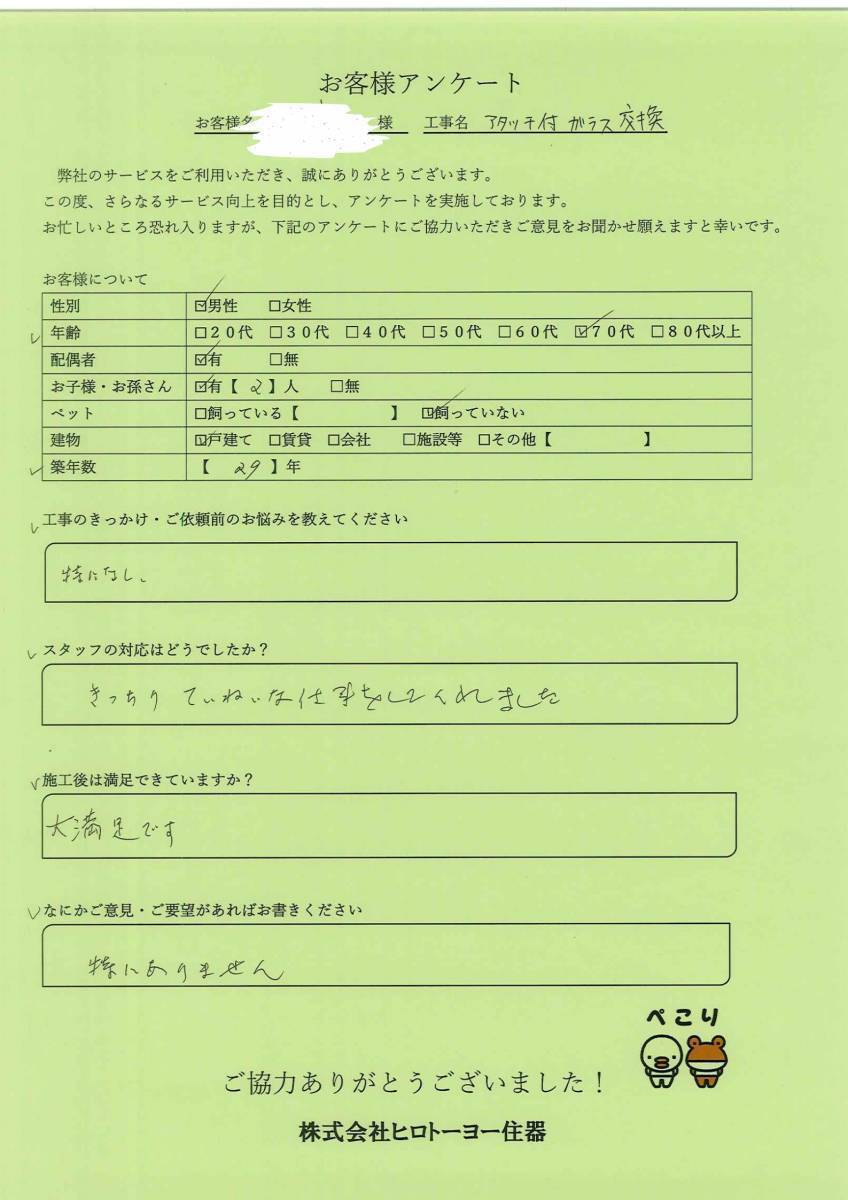 お客様アンケート
お客様名 様 工事名 アタッチ付 ガラス 交換
弊社のサービスをご利用いただき、誠にありがとうございます。
この度、さらなるサービス向上を目的とし、アンケートを実施しております。
お忙しいところ恐れ入りますが、下記のアンケートにご協力いただきご意見をお聞かせ願えますと幸いです。
お客様について
性別 ☑男性 □女性
年齢 □20代 □30代 □40代 □50代 □60代 ☑70代 □80代以上
配偶者 ☑有 □無
お子様・お孫さん ☑有【 2 】人 □無
ペット □飼っている【 】 ☑飼っていない
建物 ☑戸建て □賃貸 □会社 □施設等 □その他【 】
築年数 【 29 】年
工事のきっかけ・ご依頼前のお悩みを教えてください
特になし、
スタッフの対応はどうでしたか？
きっちり ていねいな仕事をしてくれました
施工後は満足できていますか？
大満足です
なにかご意見・ご要望があればお書きください
特にありません
ぺこり
ご協力ありがとうございました！
株式会社ヒロトーヨー住器